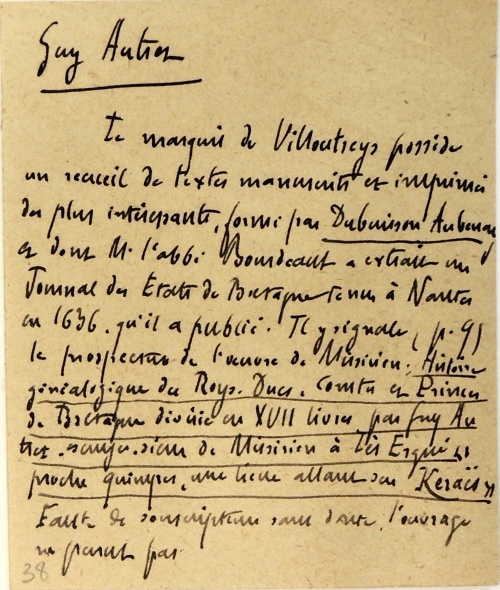 Guy Autret
Le marquis de Villoutreys possède
un recueil de textes manuscrits et imprimés
des plus intéressants, formé par Dubuisson Aubenay
et dont M. l'abbé Bourdeaut a extrait un
Journal des Etats de Bretagne tenus à Nantes
en 1636, qu'il a publié. Il y signale (p. 9)
le prospectus de l'œuvre de Missirien : Histoire
généalogique des Roys, Ducs, Comtes et Princes
de Bretagne divisée en XVII livres par Guy Au
tret, sieur de Missirien à Lès Ergué
proche quimper, une lieue allant
Faute de souscripteurs sans doute, l'ouvrage
ne parut pas
38